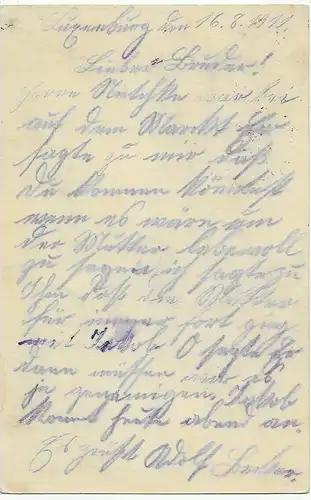 Luxemburg den 16.8.1911.
Lieber Bruder!
Herr war bei
auf dem Markt Er
sagte zu mir daß
du kommen könntest
wenn es wäre um
der Mutter lebewoll
zu sagen, ich sagte zu
Ihm daß die Mutter
für immer fort ging
mit Jakob. O sagte Er
dann müssen wir es
ja genemigen, Jakob
komt heute abend an.
Es grüßt Adolf